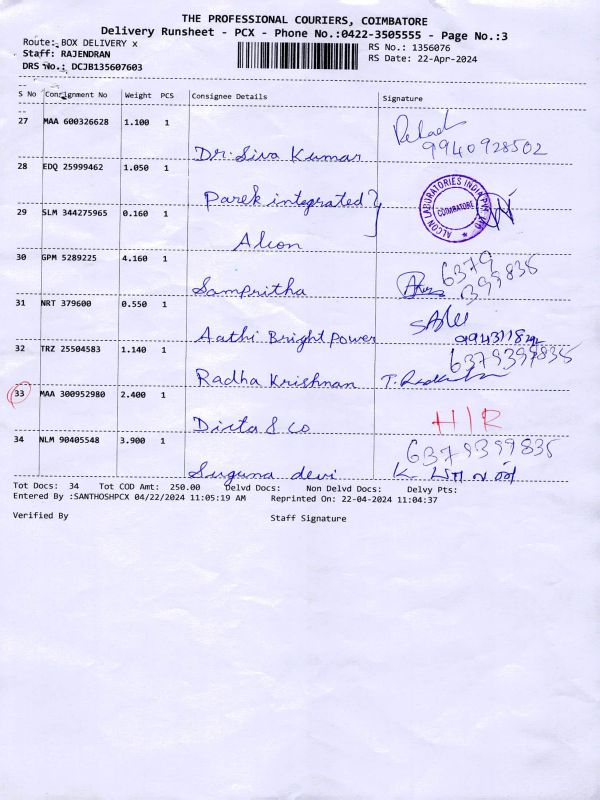 THE PROFESSIONAL COURIERS, COIMBATORE
Delivery Runsheet - PCX - Phone No.:0422-3505555 - Page No.:3
Route: BOX DELIVERY x
RS No.: 1356076
Staff: RAJENDRAN
RS Date: 22-Apr-2024
DRS No.: DCJB135607603
S No Consignment No Weight PCS Consignee Details Signature
27 MAA 600326628 1.100 1
9940928502
Dr. Siva Kumar
28 EDQ 25999462 1.050 1
Parek integrated
ALCON LABORATORIES INDIA PVT LTD
COIMBATORE
29 SLM 344275965 0.160 1
Alcon
30 GPM 5289225 4.160 1
6379
399835
Sampritha
31 NRT 379600 0.550 1
Aathi Bright Power
32 TRZ 25504583 1.140 1
6379399835
Radha Krishnan
33 MAA 300952980 2.400 1
H/R
Dicta & Co
34 NLM 90405548 3.900 1
6379399835
Suguna devi
Tot Docs: 34 Tot COD Amt: 250.00 Delvd Docs: Non Delvd Docs: Delvy Pts:
Entered By :SANTHOSHPCX 04/22/2024 11:05:19 AM Reprinted On: 22-04-2024 11:04:37
Verified By Staff Signature